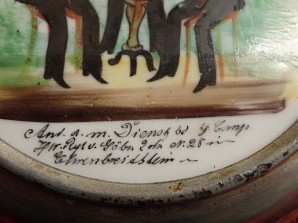 And. a. m. Dienst bd 9 Comp
Inf. Rgt. v. Göbn 2 rh Nr. 28 in
Ehrenbreitstein